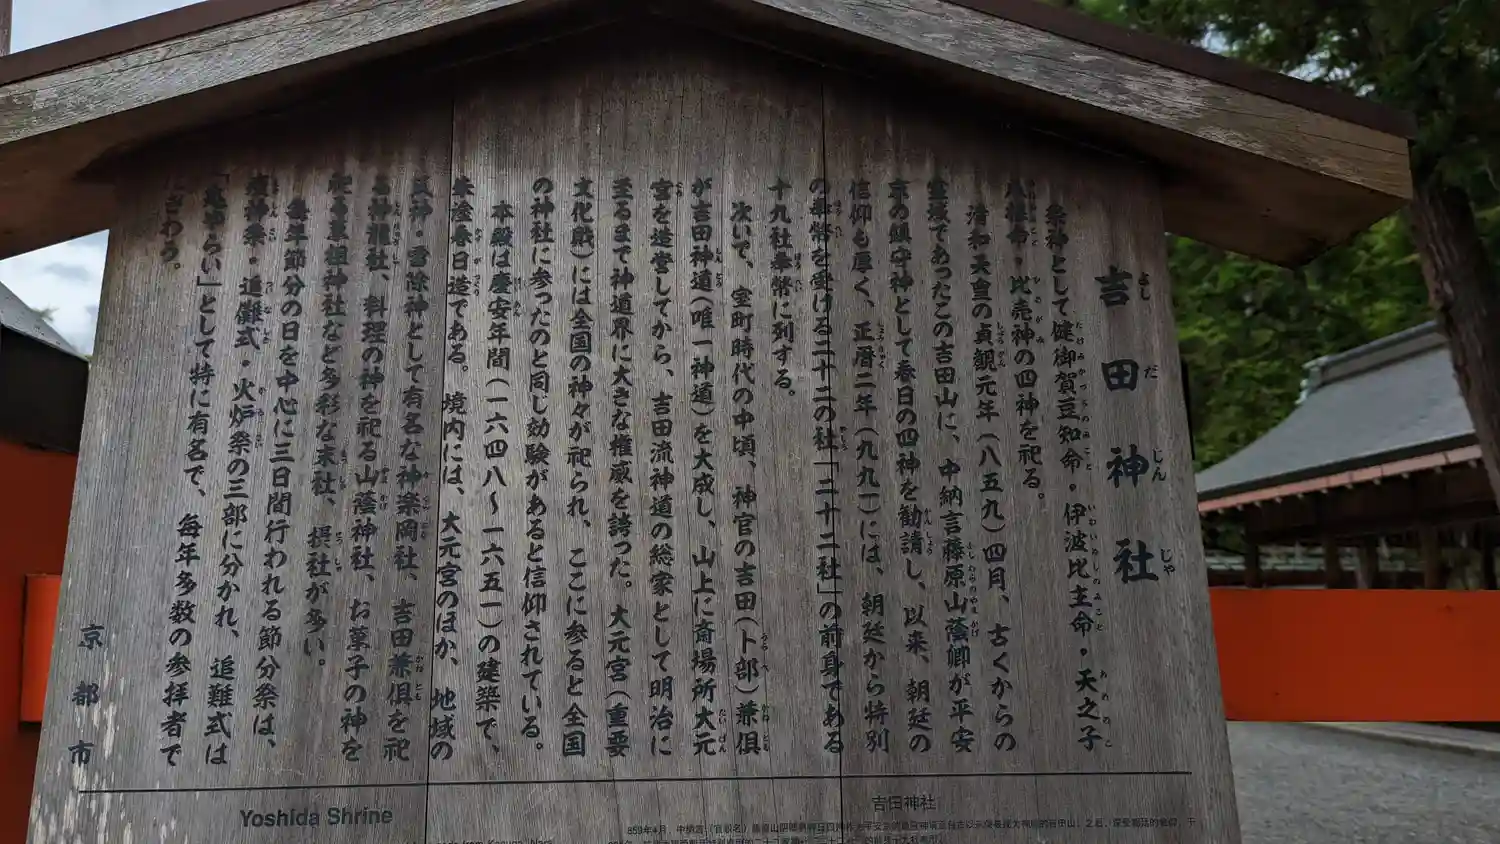 吉田神社
よしだじんじゃ
祭神として健御賀豆知命・伊波比主命・天之子
八根命・比売神の四神を祀る。
清和天皇の貞観元年（八五九）四月、古くからの
霊域であったこの吉田山に、中納言藤原山蔭卿が平安
京の鎮守神として春日の四神を勧請し、以来、朝廷の
信仰も厚く、正暦二年（九九一）には、朝廷から特別
の奉幣を受ける二十二の社「二十二社」の前身である
十九社奉幣に列する。
次いで、室町時代の中頃、神官の吉田（卜部）兼倶
が吉田神道（唯一神道）を大成し、山上に斎場所大元
宮を造営してから、吉田流神道の総家として明治に
至るまで神道界に大きな権威を誇った。大元宮（重要
文化財）には全国の神々が祀られ、ここに参ると全国
の神社に参ったのと同じ効験があると信仰されている。
本殿は慶安年間（一六四八〜一六五一）の建築で、
春日造である。境内には、大元宮のほか、地域の
神・雷除神として有名な神楽岡社、吉田兼倶を祀
る神龍社、料理の神を祀る山蔭神社、お菓子の神を
祀る菓祖神社など多彩な末社、摂社が多い。
毎年節分の日を中心に三日間行われる節分祭は、
疫神祭・追儺式・火炉祭の三部に分かれ、追難式は
「鬼やらい」として特に有名で、毎年多数の参拝者で
にぎわう。
京都市
Yoshida Shrine
吉田神社